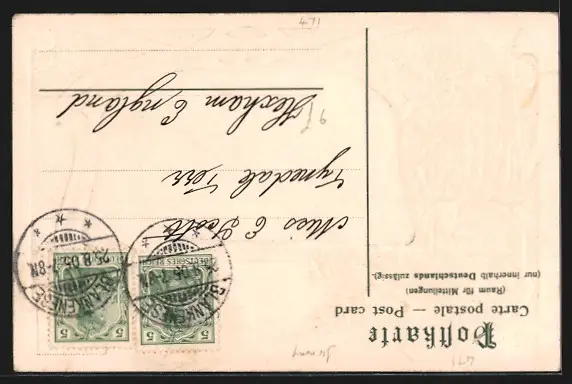 Postkarte
Carte postale — Post card
(Raum für Mitteilungen)
(nur innerhalb Deutschlands zulässig).
Miss E Scott
Tynedale Terr
Hexham England
5 5
DEUTSCHES REICH
5 5
DEUTSCHES REICH
BLANKENESE
25.8.05.7-8N.
BLANKENESE
471
471